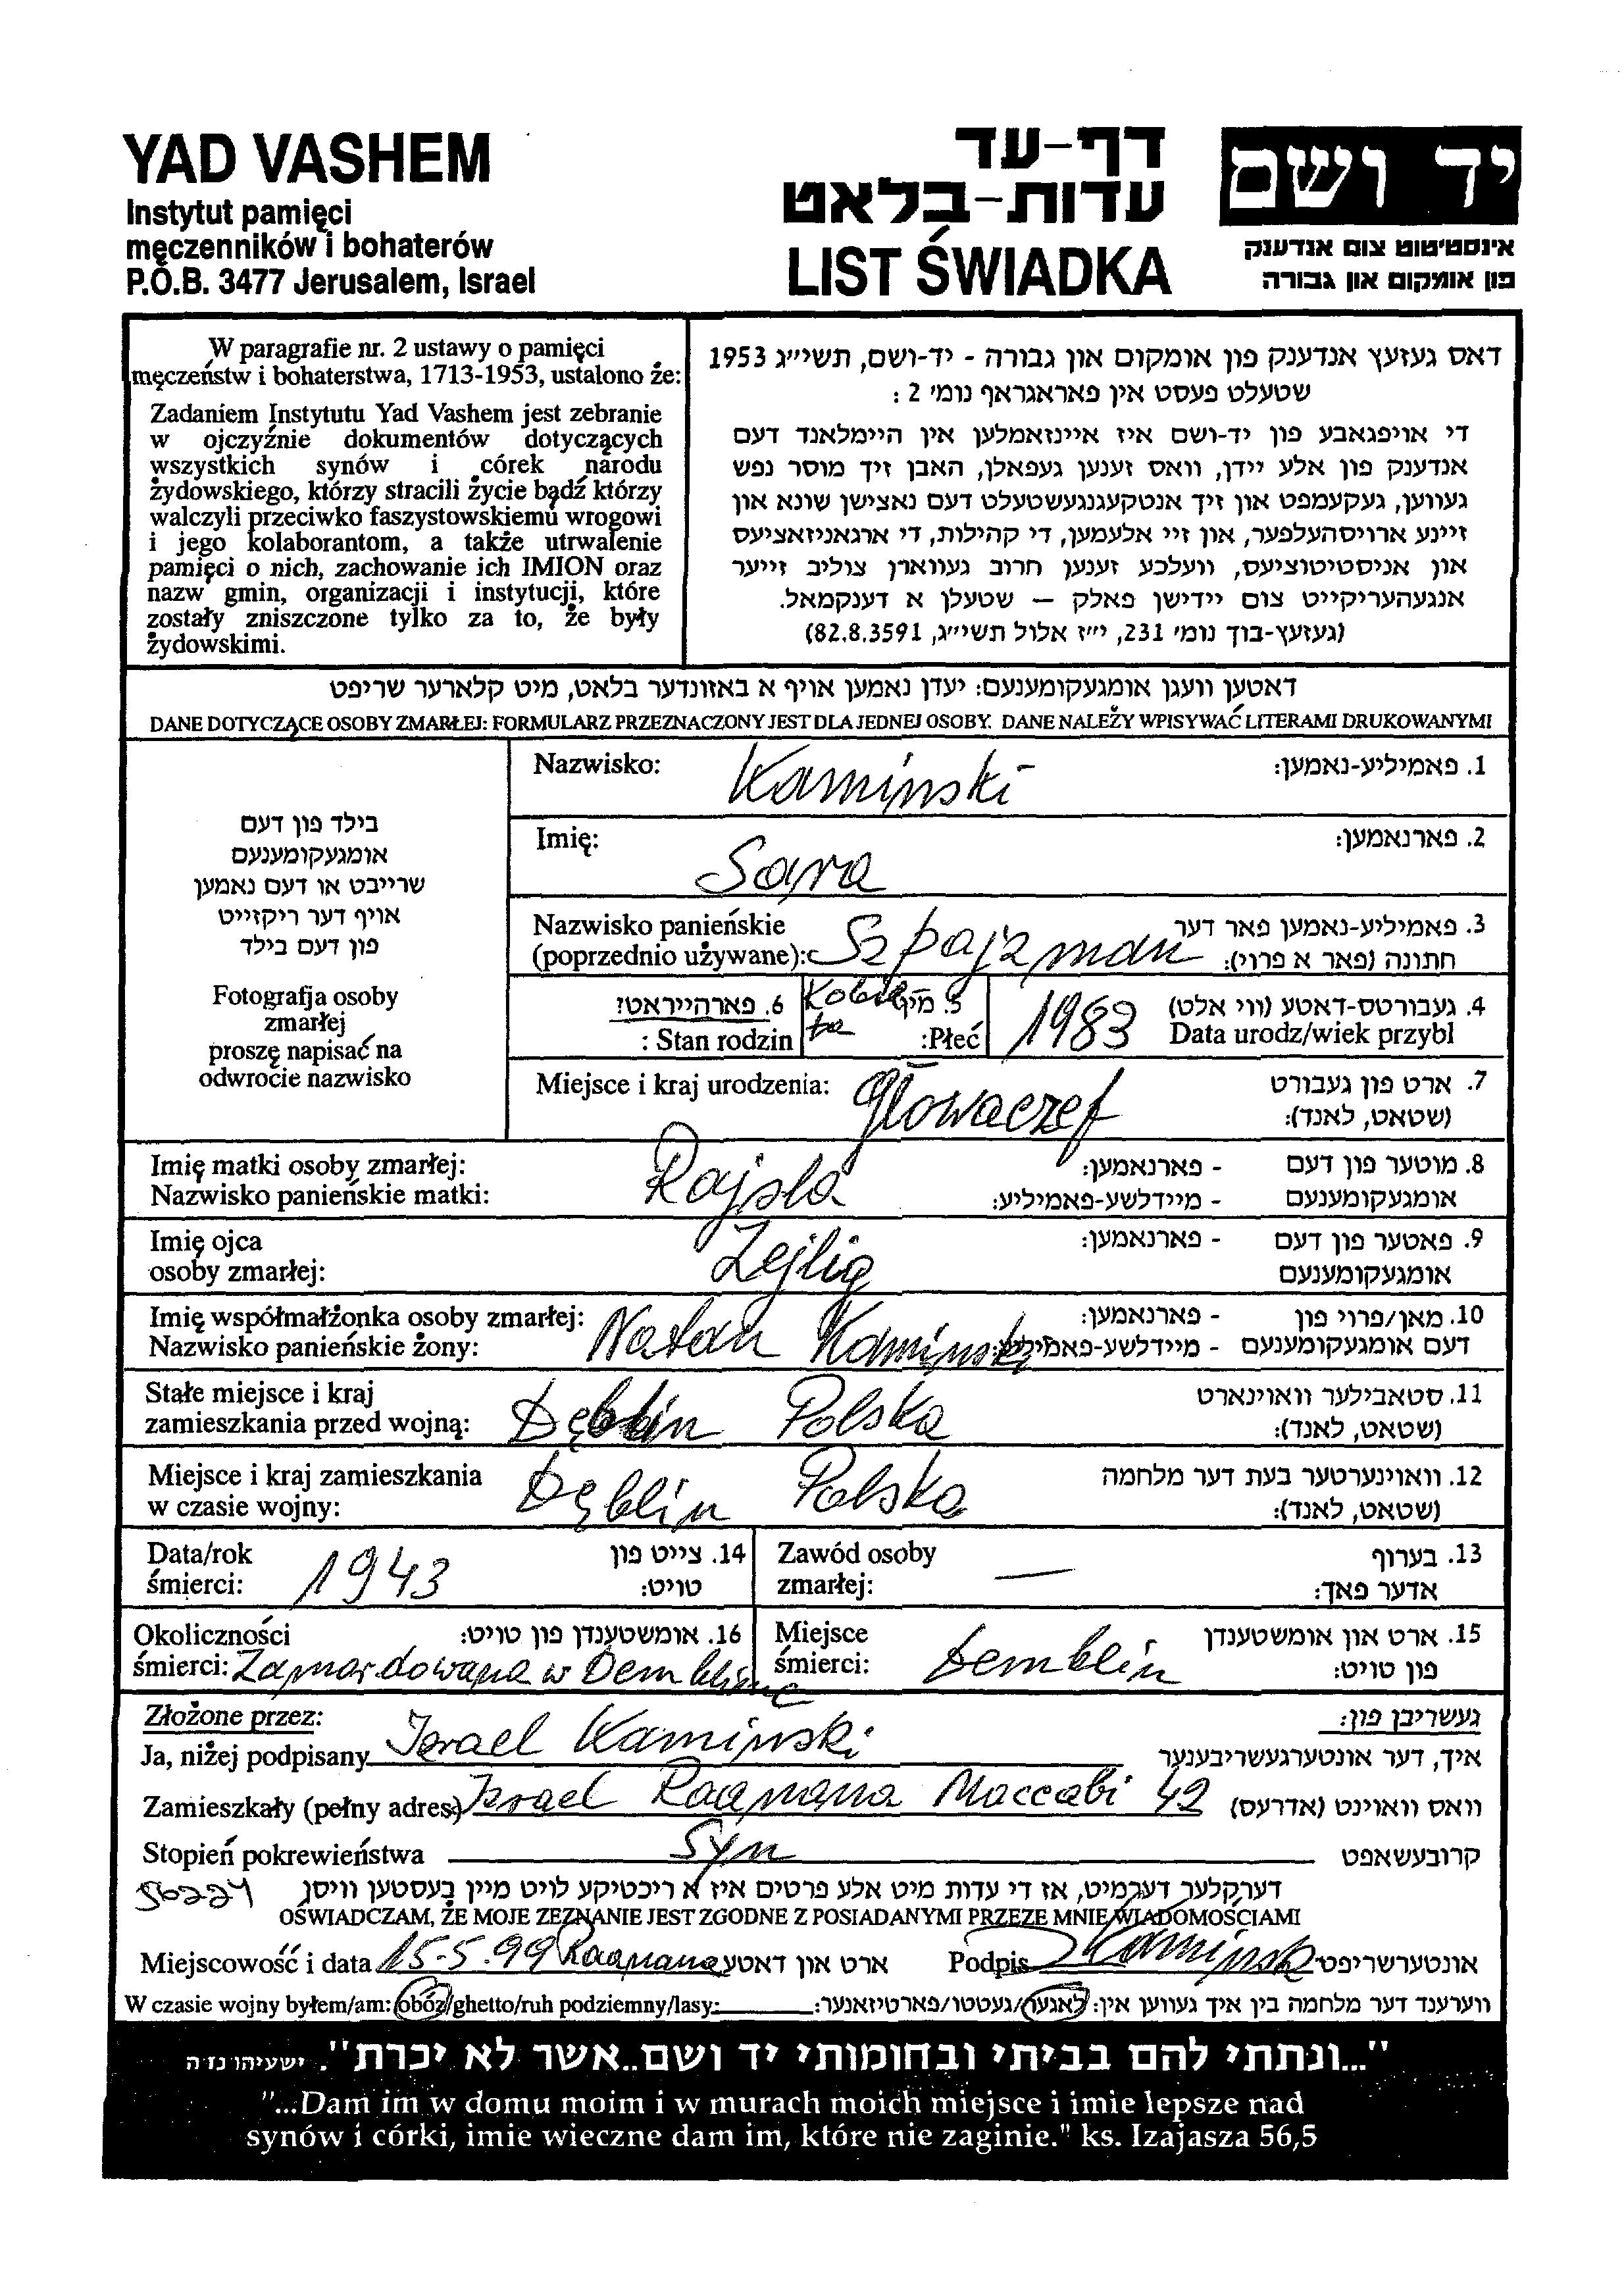 YAD VASHEM
Instytut pamięci
męczenników i bohaterów
P.O.B. 3477 Jerusalem, Israel
דף-עד
עדות-בלאט
LIST ŚWIADKA
יד ושם
אינסטיטוט צום אנדענק
פון אומקום און גבורה
W paragrafie nr. 2 ustawy o pamięci
męczeństw i bohaterstwa, 1713-1953, ustalono że:
Zadaniem Instytutu Yad Vashem jest zebranie
w ojczyźnie dokumentów dotyczących
wszystkich synów i córek narodu
żydowskiego, którzy stracili życie bądź którzy
walczyli przeciwko faszystowskiemu wrogowi
i jego kolaborantom, a także utrwalenie
pamięci o nich, zachowanie ich IMION oraz
nazw gmin, organizacji i instytucji, które
zostały zniszczone tylko za to, że były
żydowskimi.
דאס געזעץ אנדענק פון אומקום און גבורה - יד-ושם, תשי״ג 1953
שטעלט פעסט אין פאראגראף נומ׳ 2 :
די אויפגאבע פון יד-ושם איז איינזאמלען אין היימלאנד דעם
אנדענק פון אלע יידן, וואס זענען געפאלן, האבן זיך מוסר נפש
געווען, געקעמפט און זיך אנטקעגנגעשטעלט דעם נאצישן שונא און
זיינע ארויסהעלפער, און זיי אלעמען, די קהילות, די ארגאניזאציעס
און אניסטיטוציעס, וועלכע זענען חרוב געווארן צוליב זייער
אנגעהעריקייט צום יידישן פאלק – שטעלן א דענקמאל.
(געזעץ-בוך נומ׳ 231, י״ז אלול תשי״ג, 82.8.3591)
דאטען וועגן אומגעקומענעם: יעדן נאמען אויף א באזונדער בלאט, מיט קלארער שריפט
DANE DOTYCZĄCE OSOBY ZMARŁEJ: FORMULARZ PRZEZNACZONY JEST DLA JEDNEJ OSOBY. DANE NALEŻY WPISYWAĆ LITERAMI DRUKOWANYMI
בילד פון דעם
אומגעקומענעם
שרייבט או דעם נאמען
אויף דער ריקזייט
פון דעם בילד
Fotografja osoby
zmarłej
proszę napisać na
odwrocie nazwisko
Nazwisko: Kaminski 1. פאמיליע-נאמען:
Imię: Sara 2. פארנאמען:
Nazwisko panieńskie 3. פאמיליע-נאמען פאר דער
(poprzednio używane): Szpajzman חתונה (פאר א פרוי):
6. פארהייראט? Kobie 5. מין 4. געבורטס-דאטע (ווי אלט)
: Stan rodzin ta :Płeć 1983 Data urodz/wiek przybl
Miejsce i kraj urodzenia: Głowaczef 7. ארט פון געבורט
(שטאט, לאנד):
Imię matki osoby zmarłej: Rajsla - פארנאמען: 8. מוטער פון דעם
Nazwisko panieńskie matki: - מיידלשע-פאמיליע: אומגעקומענעם
Imię ojca Zejlig - פארנאמען: 9. פאטער פון דעם
osoby zmarłej: אומגעקומענעם
Imię współmałżonka osoby zmarłej: Natan Kaminski - פארנאמען: 10. מאן/פרוי פון
Nazwisko panieńskie żony: - מיידלשע-פאמיליע: דעם אומגעקומענעם
Stałe miejsce i kraj 11. סטאבילער וואוינארט
zamieszkania przed wojną: Dęblin Polska (שטאט, לאנד):
Miejsce i kraj zamieszkania 12. וואוינערטער בעת דער מלחמה
w czasie wojny: Dęblin Polska (שטאט, לאנד):
Data/rok 14. צייט פון Zawód osoby 13. בערוף
śmierci: 1943 טויט: zmarłej: — אדער פאך:
Okoliczności 16. אומשטענדן פון טויט: Miejsce 15. ארט און אומשטענדן
śmierci: Zamardowana w Demblinie śmierci: Demblin פון טויט:
Złożone przez: געשריבן פון:
Ja, niżej podpisany Israel Kaminski איך, דער אונטערגעשריבענער
Zamieszkały (pełny adres) Israel Raanana Maccabi 42 וואס וואוינט (אדרעס)
Stopień pokrewieństwa Syn קרובעשאפט
דערקלער דערמיט, אז די עדות מיט אלע פרטים איז א ריכטיקע לויט מיין בעסטען וויסן
OŚWIADCZAM, ŻE MOJE ZEZNANIE JEST ZGODNE Z POSIADANYMI PRZEZE MNIE WIADOMOŚCIAMI
Miejscowość i data 15-5.99 Raanana ארט און דאטע Podpis Kaminski אונטערשריפט
W czasie wojny byłem/am: obóz/ghetto/ruh podziemny/lasy: ווערענד דער מלחמה בין איך געווען אין: לאגער/געטטו/פארטיזאנער:
"...ונתתי להם בביתי ובחומותי יד ושם..אשר לא יכרת". ישעיהו נז ה
"...Dam im w domu moim i w murach moich miejsce i imie lepsze nad
synów i córki, imie wieczne dam im, które nie zaginie." ks. Izajasza 56,5